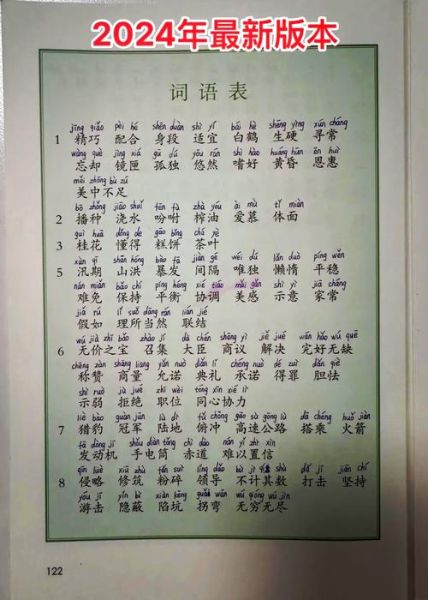 2024年最新版本
词语表
jīng qiǎo pèi hé shēn duàn shì yí bái hè shēng yìng xún cháng
1 精巧 配合 身段 适宜 白鹤 生硬 寻常
wàng què jìng xiá gū dú yōu rán shì hào huáng hūn ēn huì
忘却 镜匣 孤独 悠然 嗜好 黄昏 恩惠
měi zhōng bù zú
美中不足
bō zhǒng jiāo shuǐ fēn fù zhà yóu ài mù tǐ miàn
2 播种 浇水 吩咐 榨油 爱慕 体面
guì huā dǒng de gāo bǐng chá yè
3 桂花 懂得 糕饼 茶叶
xùn qī shān hóng bào fā jiàn gé wéi dú lǎn duò píng wěn
5 汛期 山洪 暴发 间隔 唯独 懒惰 平稳
nán miǎn bǎo chí píng héng xié tiáo měi gǎn shì yì jiā cháng
难免 保持 平衡 协调 美感 示意 家常
jiǎ rú lǐ suǒ dāng rán lián jié
假如 理所当然 联结
wú jià zhī bǎo zhào jí dà chén shāng yì jiě jué wán hǎo wú quē
6 无价之宝 召集 大臣 商议 解决 完好无缺
chēng zàn shāng liang yǔn nuò diǎn lǐ chéng nuò dé zuì dǎn qiè
称赞 商量 允诺 典礼 承诺 得罪 胆怯
shì ruò jù jué zhí wèi tóng xīn xié lì
示弱 拒绝 职位 同心协力
liè bào guàn jūn lù dì fǔ chōng gāo sù gōng lù dā chéng huǒ jiàn
7 猎豹 冠军 陆地 俯冲 高速公路 搭乘 火箭
fā dòng jī shǒu diàn tǒng chì dào nán yǐ zhì xìn
发动机 手电筒 赤道 难以置信
qīn lüè xiū zhù fěn suì lǐng dǎo bù jì qí shù dǎ jī jiān chí
8 侵略 修筑 粉碎 领导 不计其数 打击 坚持
yóu jī yǐn bì xiàn kēng guǎi wān wú qióng wú jìn
游击 隐蔽 陷坑 拐弯 无穷无尽
122